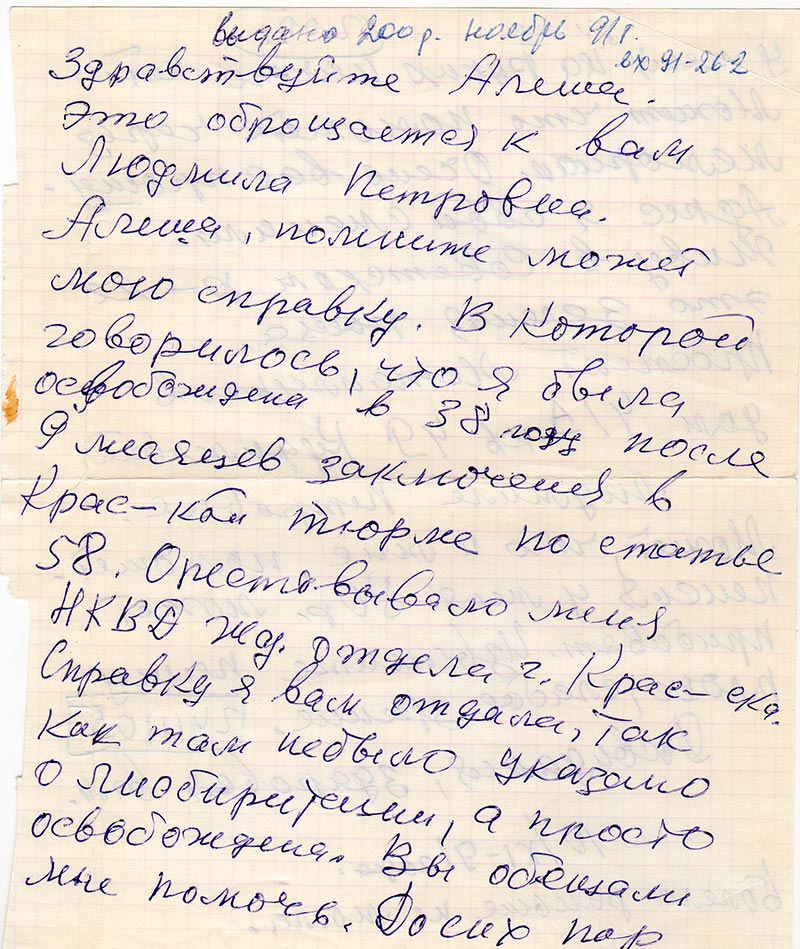 выдано 200 р. ноябрь 91 г.
вх 91-262
Здравствуйте Алеша.
Это оброщается к вам
Людмила Петровна.
Алеша, помните может
мою справку. В которой
говорилось, что я была
освобождена в 38 году после
9 месяцев заключения в
Крас-кой тюрме по статье
58. Орестовывало меня
НКВД жд. отдела г. Крас-ска.
Справку я вам отдала, так
как там небыло указано
о лиобиритации, а просто
освобождена. Вы обещали
мне помочь. До сих пор